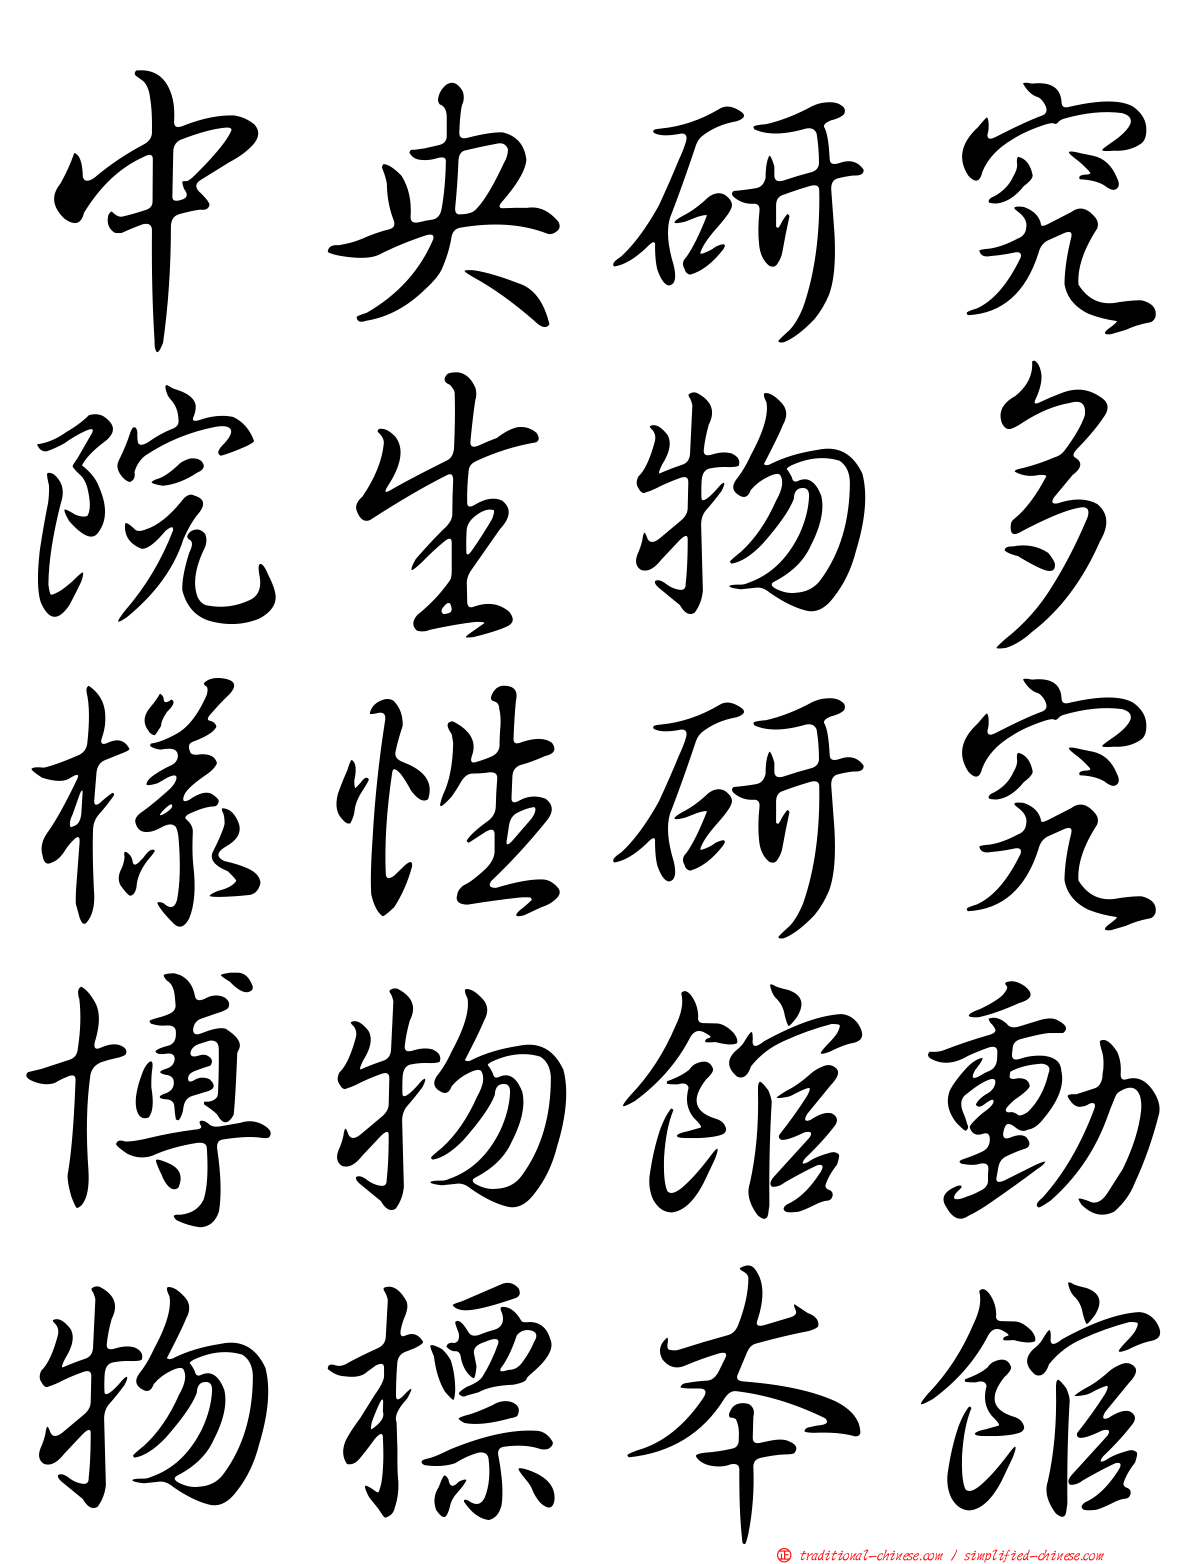 中央研究
院生物多
樣性研究
博物館動
物標本館
正 traditional-chinese.com / simplified-chinese.com